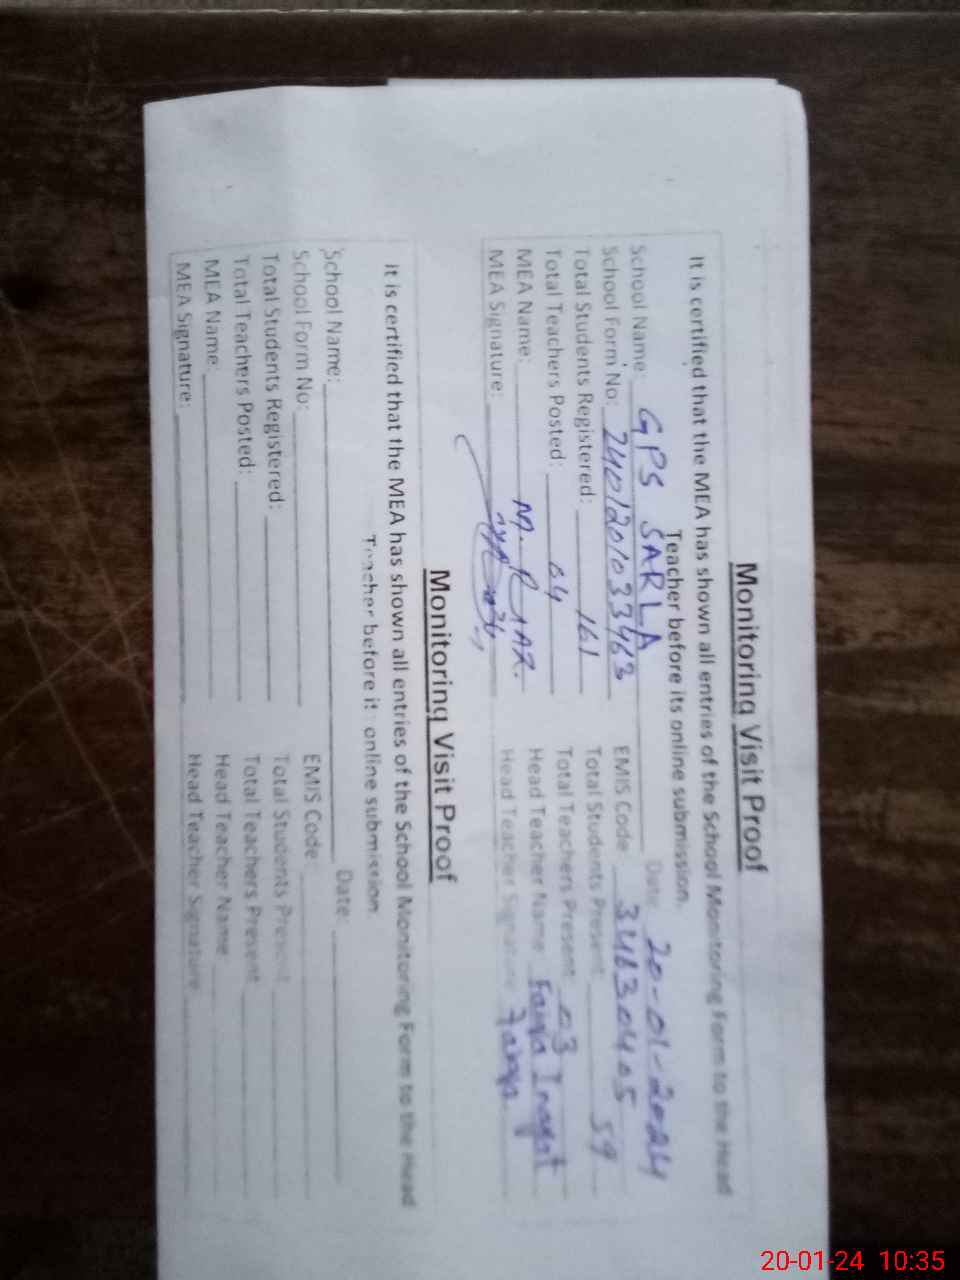 Monitoring Visit Proof
It is certified that the MEA has shown all entries of the School Monitoring Form to the Head
Teacher before its online submission.
School Name: GPS SARLA Date: 20-01-2024
School Form No: 2401201033463 EMIS Code
Total Students Registered: 161 Total Students Present 59
Total Teachers Posted: 04 Total Teachers Present 03
MEA Name: Head Teacher Name
MEA Signature: Head Teacher Signature
Monitoring Visit Proof
It is certified that the MEA has shown all entries of the School Monitoring Form to the Head
Teacher before its online submission
School Name: Date:
School Form No: EMIS Code
Total Students Registered: Total Students Present
Total Teachers Posted: Total Teachers Present
MEA Name: Head Teacher Name
MEA Signature: Head Teacher Signature
20-01-24 10:35